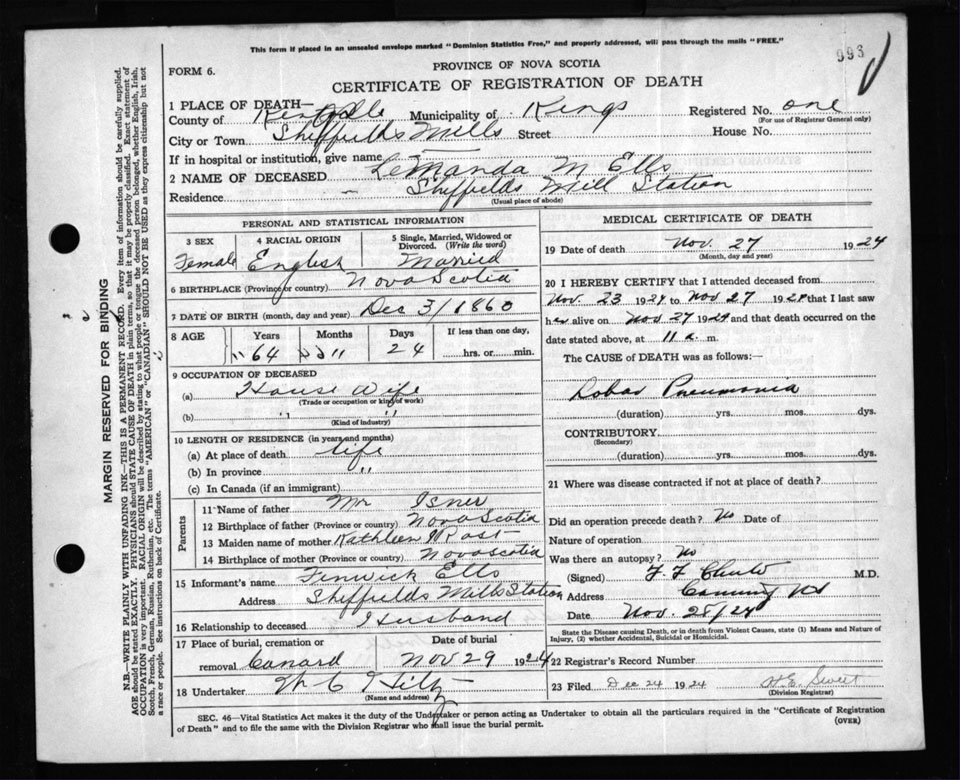 This form if placed in an unsealed envelope marked "Dominion Statistics Free," and properly addressed, will pass through the mails "FREE."
993
FORM 6.
PROVINCE OF NOVA SCOTIA
CERTIFICATE OF REGISTRATION OF DEATH
1 PLACE OF DEATH—
County of Municipality of Kings Registered No. one
(For use of Registrar General only)
City or Town Sheffields Mills Street House No.
If in hospital or institution, give name
2 NAME OF DECEASED LeManda M Ells
Residence Sheffields Mill Station
(Usual place of abode)
PERSONAL AND STATISTICAL INFORMATION
3 SEX 4 RACIAL ORIGIN 5 Single, Married, Widowed or Divorced. (Write the word)
Female English Married
6 BIRTHPLACE (Province or country) Nova Scotia
7 DATE OF BIRTH (month, day and year) Dec 3/1860
8 AGE Years Months Days If less than one day,
64 11 24 hrs. or min.
9 OCCUPATION OF DECEASED
(a) House Wife
(Trade or occupation or kind of work)
(b) " "
(Kind of industry)
10 LENGTH OF RESIDENCE (in years and months)
(a) At place of death life
(b) In province "
(c) In Canada (if an immigrant)
Parents
11 Name of father Mr Isner
12 Birthplace of father (Province or country) Nova Scotia
13 Maiden name of mother Kathleen
14 Birthplace of mother (Province or country) Nova Scotia
15 Informant's name Fenwick Ells
Address Sheffields Mills Station
16 Relationship to deceased Husband
17 Place of burial, cremation or removal Canard Date of burial Nov 29 1924
18 Undertaker W C Hiltz
(Name and address)
MEDICAL CERTIFICATE OF DEATH
19 Date of death Nov. 27 1924
(Month, day and year)
20 I HEREBY CERTIFY that I attended deceased from
Nov. 23 1924 to Nov 27 1924 that I last saw
her alive on Nov 27 1924 and that death occurred on
date stated above, at 11 m.
The CAUSE of DEATH was as follows:
Lobar Pneumonia
(duration) yrs. mos. dys.
CONTRIBUTORY
(Secondary)
(duration) yrs. mos. dys.
21 Where was disease contracted if not at place of death?
Did an operation precede death? No Date of
Nature of operation
Was there an autopsy? No
(Signed) F F Chute M.D.
Address Canning NS
Date Nov. 28/24
State the Disease causing Death, or in death from Violent Causes, state (1) Means and Nature of Injury, (2) whether Accidental, Suicidal or Homicidal.
22 Registrar's Record Number
23 Filed Dec 24 1924 H.E. Sweet
(Division Registrar)
SEC. 46—Vital Statistics Act makes it the duty of the Undertaker or person acting as Undertaker to obtain all the particulars required in the "Certificate of Registration
of Death" and to file the same with the Division Registrar who shall issue the burial permit. (OVER)
MARGIN RESERVED FOR BINDING
N.B.—WRITE PLAINLY WITH UNFADING INK—THIS IS A PERMANENT RECORD. Every item of information should be carefully supplied.
AGE should be stated EXACTLY. PHYSICIANS should STATE CAUSE OF DEATH in plain terms, so that it may be properly classified. Exact statement of
OCCUPATION is very important. RACIAL ORIGIN will be described by stating to what people or tongue the deceased person belonged, whether English, Irish,
Scotch, French, German, Russian, Ruthenian, etc. The terms "AMERICAN" or "CANADIAN" SHOULD NOT BE USED as they express citizenship but not
a race or people. See instructions on back of Certificate.